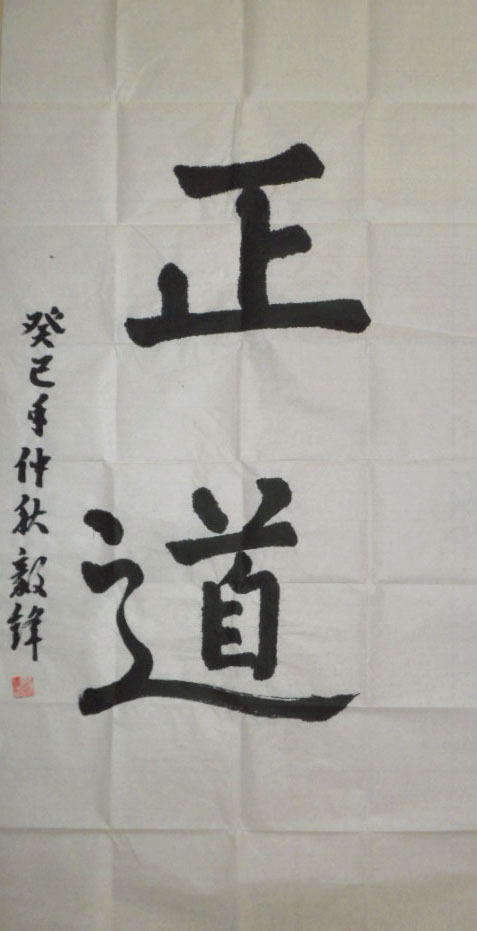 正道
癸巳年仲秋毅鋒